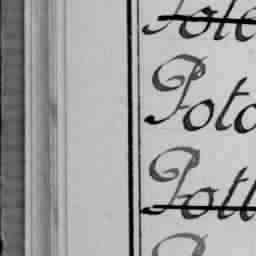 Pote
Poto
Pott